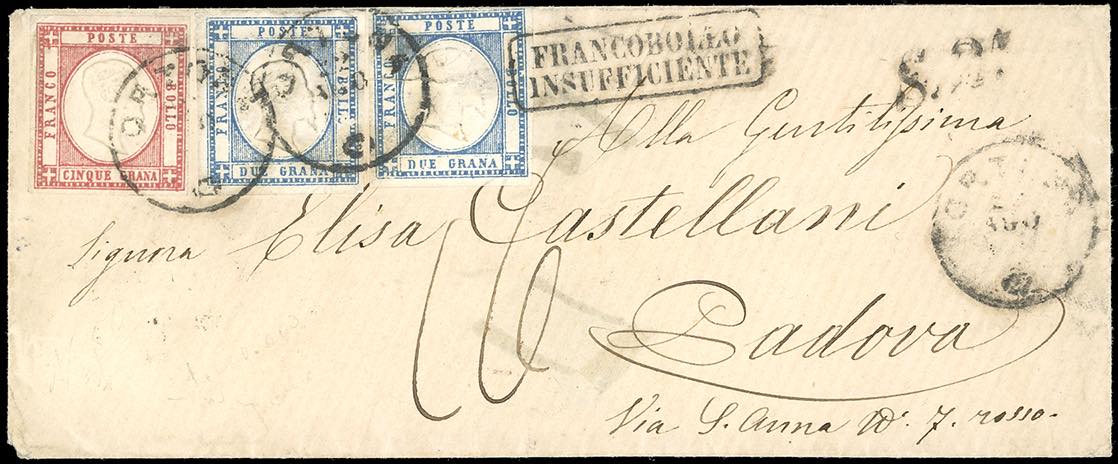 POSTE
FRANCO
BOLLO
CINQUE GRANA
POSTE
FRANCO
BOLLO
DUE GRANA
POSTE
FRANCO
DUE GRANA
FRANCOBOLLO
INSUFFICIENTE
Alla Gentilissima
Signora Elisa Castellani
Padova
Via S. Anna N. 7. rosso.
AGO